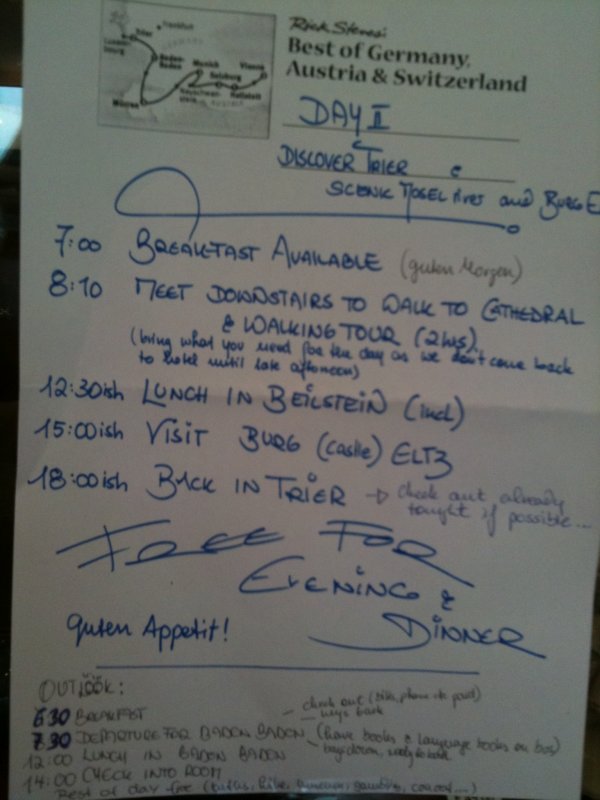 Rick Steves'
Best of Germany,
Austria & Switzerland
Frankfurt
Trier
Baden-
Baden
Munich
Salzburg
Vienna
Hallstatt
DAY II
DISCOVER TRIER
SCENIC MOSEL river and BURG E
7:00 BREAKFAST AVAILABLE (guten Morgen)
8:10 MEET DOWNSTAIRS TO WALK TO CATHEDRAL
& WALKING TOUR (2hrs)
(bring what you need for the day as we don't come back
to hotel until late afternoon)
12:30ish LUNCH IN BEILSTEIN (incl)
15:00ish VISIT BURG (castle) ELTZ
18:00ish BACK IN TRIER → check out already
tonight if possible...
FREE FOR
EVENING &
DINNER
guten Appetit!
OUTLOOK:
check out (bills, phone etc paid)
6:30 BREAKFAST keys back
7:30 DEPARTURE FOR BADEN BADEN (have books & language books on bus)
12:00 LUNCH IN BADEN BADEN
14:00 CHECK INTO ROOM
Rest of day free